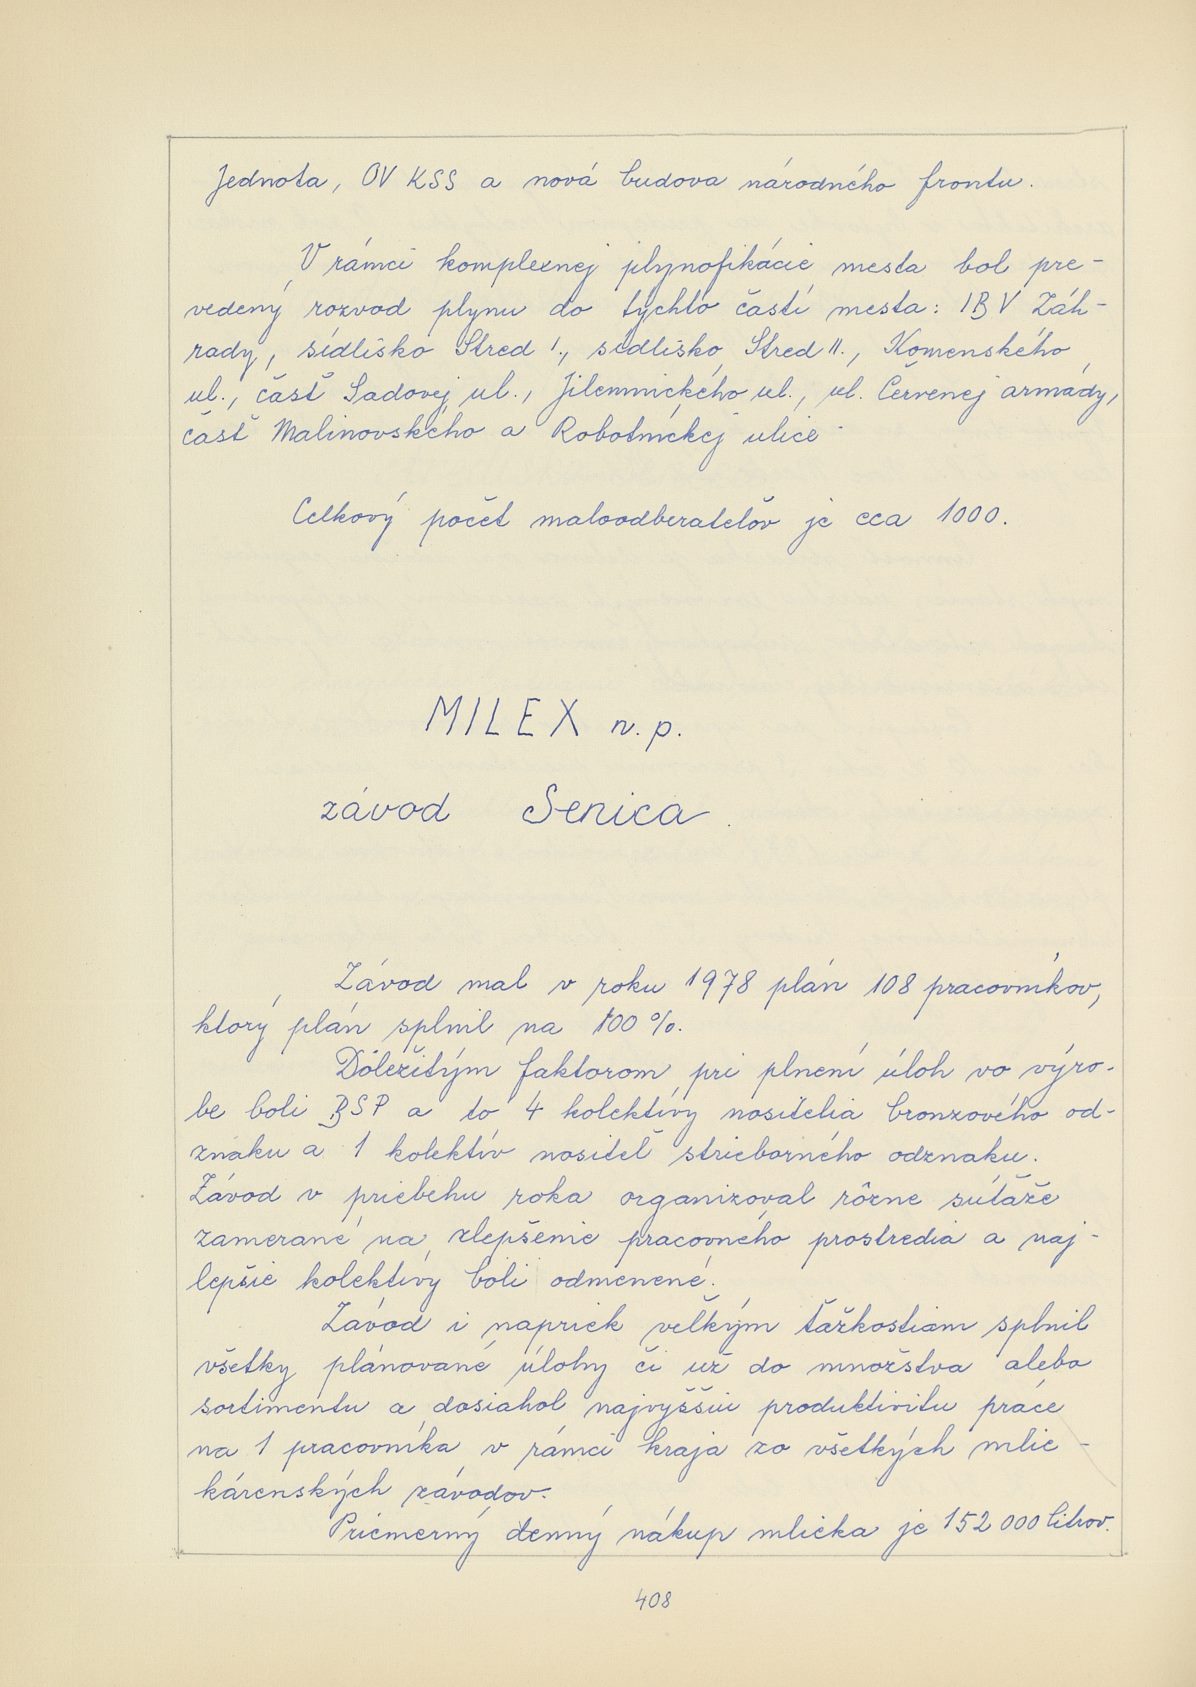 Jednota, OV KSS a nová budova národného frontu.
V rámci komplexnej plynofikácie mesta bol pre-
vedený rozvod plynu do týchto častí mesta: IBV Záh-
rady, sídlisko Stred I., sídlisko Stred II., Komenského
ul., časť Sadovej ul., Jilemnického ul., ul. Červenej armády,
časť Malinovského a Robotníckej ulice.
Celkový počet maloodberateľov je cca 1000.
MILEX n.p.
závod Senica.
Závod mal v roku 1978 plán 108 pracovníkov,
ktorý plán splnil na 100 %.
Dôležitým faktorom pri plnení úloh vo výro-
be boli BSP a to 4 kolektívy nositelia bronzového od-
znaku a 1 kolektív nositeľ strieborného odznaku.
Závod v priebehu roka organizoval rôzne súťaže
zamerané na zlepšenie pracovného prostredia a naj-
lepšie kolektívy boli odmenené.
Závod i napriek veľkým ťažkostiam splnil
všetky plánované úlohy či už do množstva alebo
sortimentu a dosiahol najvyššiu produktivitu práce
na 1 pracovníka v rámci kraja zo všetkých mlie-
kárenských závodov.
Priemerný denný nákup mlieka je 152 000 litrov.
408